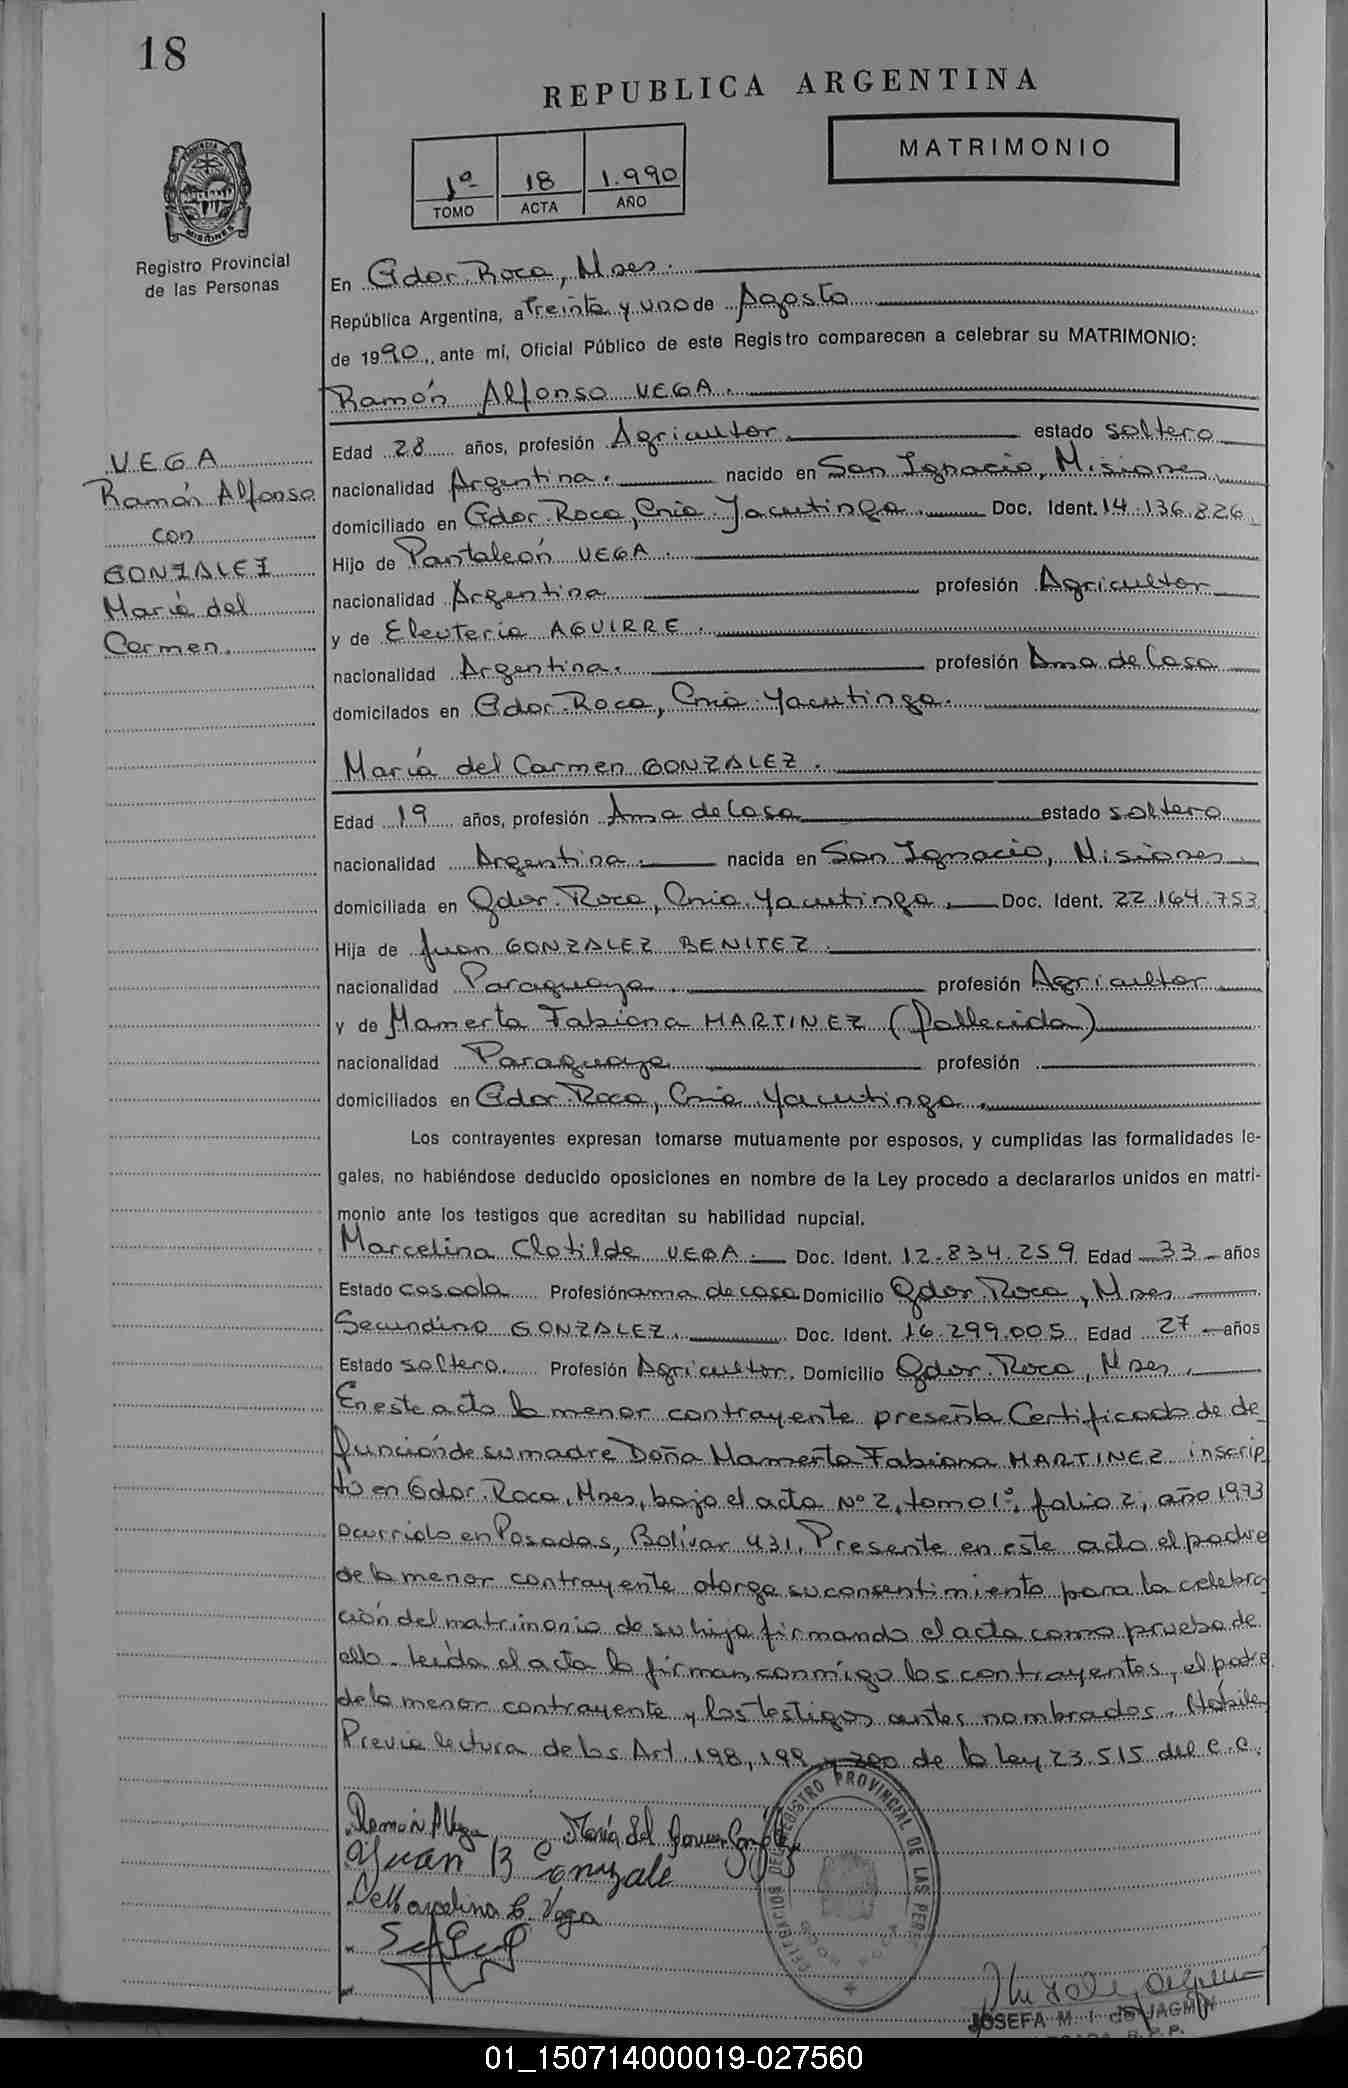 18
REPUBLICA ARGENTINA
MATRIMONIO
1º 18 1.990
TOMO ACTA AÑO
PROVINCIA DE MISIONES
Registro Provincial
de las Personas
En Gdor. Roca, Mnes.
República Argentina, a Treinta y uno de Agosto
de 1990, ante mí, Oficial Público de este Registro comparecen a celebrar su MATRIMONIO:
Ramón Alfonso VEGA.
VEGA
Ramón Alfonso
con
GONZALEZ
María del
Carmen.
Edad 28 años, profesión Agricultor estado soltero
nacionalidad Argentina. nacido en San Ignacio, Misiones
domiciliado en Gdor. Roca, Cnia. Yacutinga. Doc. Ident. 14.136.826.
Hijo de Pantaleón VEGA.
nacionalidad Argentina profesión Agricultor
y de Eleuteria AGUIRRE.
nacionalidad Argentina. profesión Ama de Casa
domicilados en Gdor. Roca, Cnia. Yacutinga.
María del Carmen GONZALEZ.
Edad 19 años, profesión Ama de Casa estado soltera
nacionalidad Argentina. nacida en San Ignacio, Misiones.
domiciliada en Gdor. Roca, Cnia. Yacutinga. Doc. Ident. 22.164.753
Hija de Juan GONZALEZ BENITEZ.
nacionalidad Paraguaya. profesión Agricultor
y de Mamerta Fabiana MARTINEZ (fallecida)
nacionalidad Paraguaya profesión
domiciliados en Gdor. Roca, Cnia. Yacutinga.
Los contrayentes expresan tomarse mutuamente por esposos, y cumplidas las formalidades le-
gales, no habiéndose deducido oposiciones en nombre de la Ley procedo a declararlos unidos en matri-
monio ante los testigos que acreditan su habilidad nupcial.
Marcelina Clotilde VEGA. Doc. Ident. 12.834.259 Edad 33 años
Estado casada Profesión ama de casa Domicilio Gdor. Roca, Mnes
Secundino GONZALEZ. Doc. Ident. 16.299.005 Edad 27 años
Estado soltero. Profesión Agricultor. Domicilio Gdor. Roca, Mnes.
En este acto la menor contrayente presenta Certificado de de
función de su madre Doña Mamerta Fabiana MARTINEZ inscrip
to en Gdor. Roca, Mnes, bajo el acta Nº 2, tomo 1º, folio 2, año 1973
ocurrido en Posadas, Bolívar 431. Presente en este acto el padre
de la menor contrayente otorga su consentimiento para la celebra
ción del matrimonio de su hija firmando el acta como prueba de
ello. Leída el acta la firman conmigo los contrayentes, el padre
de la menor contrayente y los testigos antes nombrados. Hábiles
Previa lectura de los Art 198, 199 y 200 de la Ley 23.515 del C.C.
Ramón A Vega María del Carmen González
Juan B Gonzale
Marcelina C. Vega
DELEGACION DEL REGISTRO PROVINCIAL DE LAS PERS
JOSEFA M. I. de JAGMIN
01_150714000019-027560